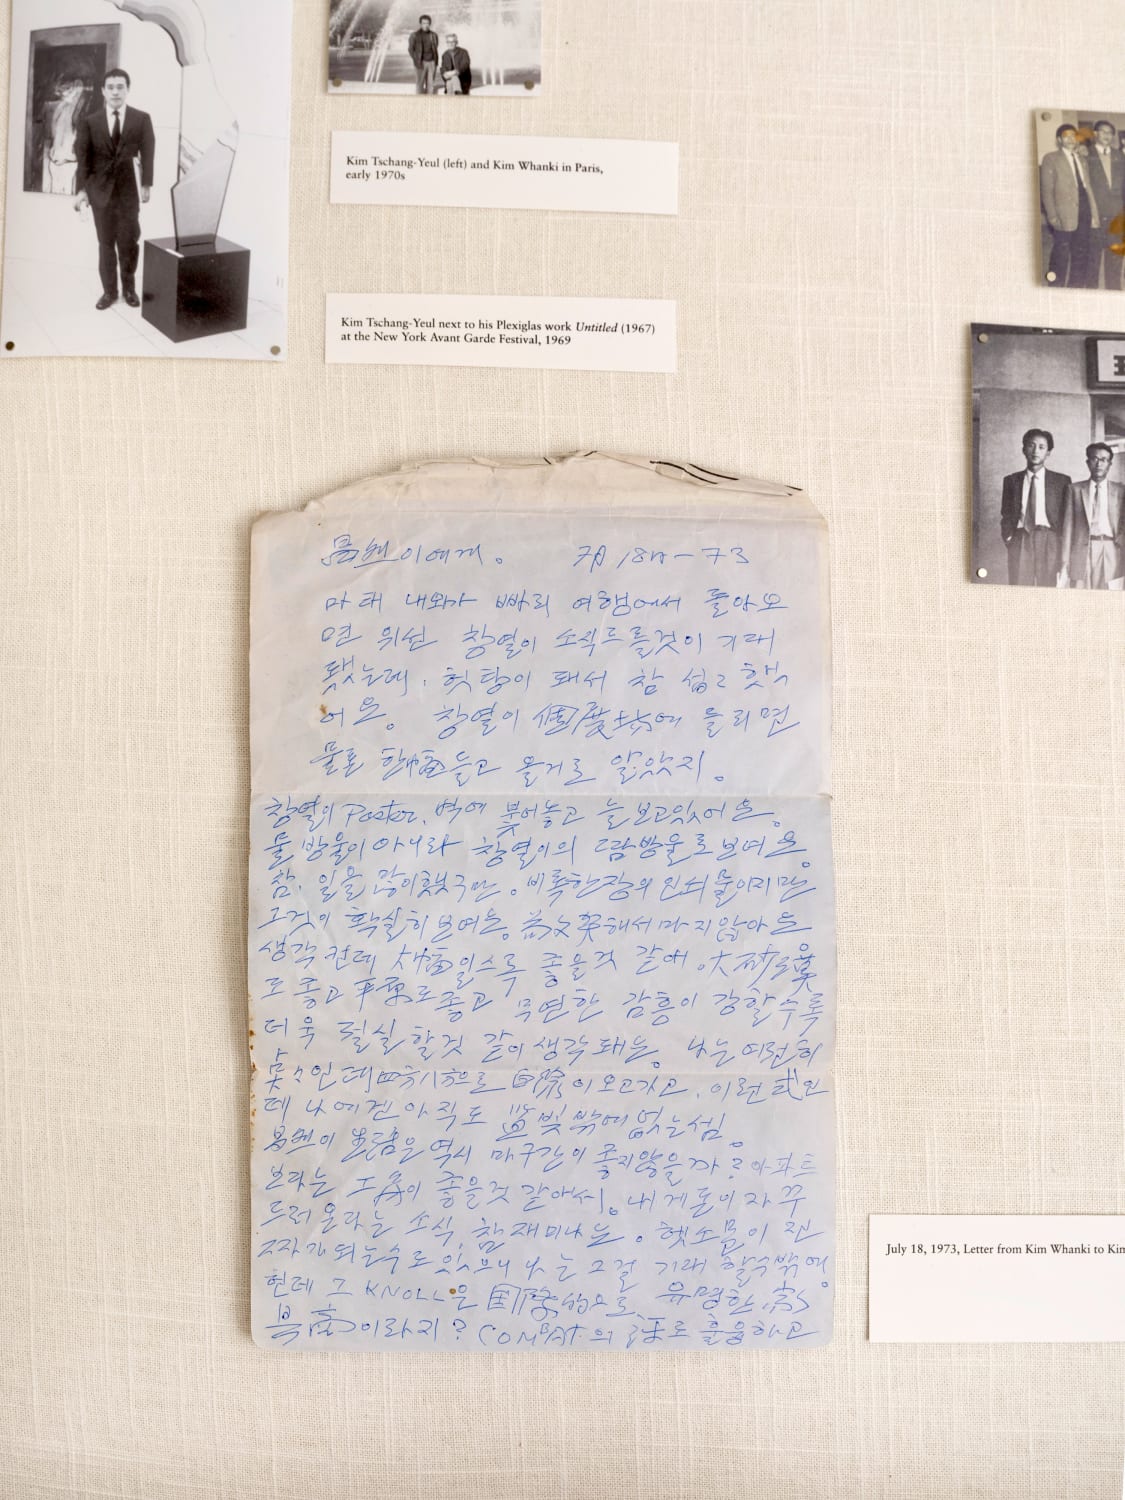 Kim Tschang-Yeul (left) and Kim Whanki in Paris,
early 1970s
Kim Tschang-Yeul next to his Plexiglas work Untitled (1967)
at the New York Avant Garde Festival, 1969
이에게. 7月 18日-73
마태 내와가 빠리 여행에서 돌아오
면 위선 창열이 소식드를것이 기대
됐는데. 헛탕이 돼서 참 섭ㄹ햇
어요. 창열이 에 들리면
물론 들고 올거로 알았지.
창열이 Poster. 벽에 붗어놓고 늘 보고있어요.
물방울이 아니라 창열이의 땀방울로 보여요.
참. 일을 많이했구만. 비록 한장의 인쇄물이지만
그것이 확실히 보여요. 해서 마지않아요
생각컨데 일수록 좋을것 같애. 大
도 좋고 平原도 좋고 무연한 감흥이 강할수록
더욱 절실할것 같이 생각돼요. 나는 여전히
인데 으로 이 오고가고. 이런 式인
데 나에겐 아직도 빛밖에 없는셈.
이 은 역시 마구간이 좋지않을까? 아파트
보라는 이 좋을것 같아서. 내게 돈이 자꾸
드러온라는 소식. 참 재미나는. 헷소문이 진
ㄷ자가 되는수도 있으니 나는 그걸 기대할수밖에.
헌데 그 KNOLL은 国際的으로 유명한
이라지? COMBAT의 로 흥하고
July 18, 1973, Letter from Kim Whanki to Kim